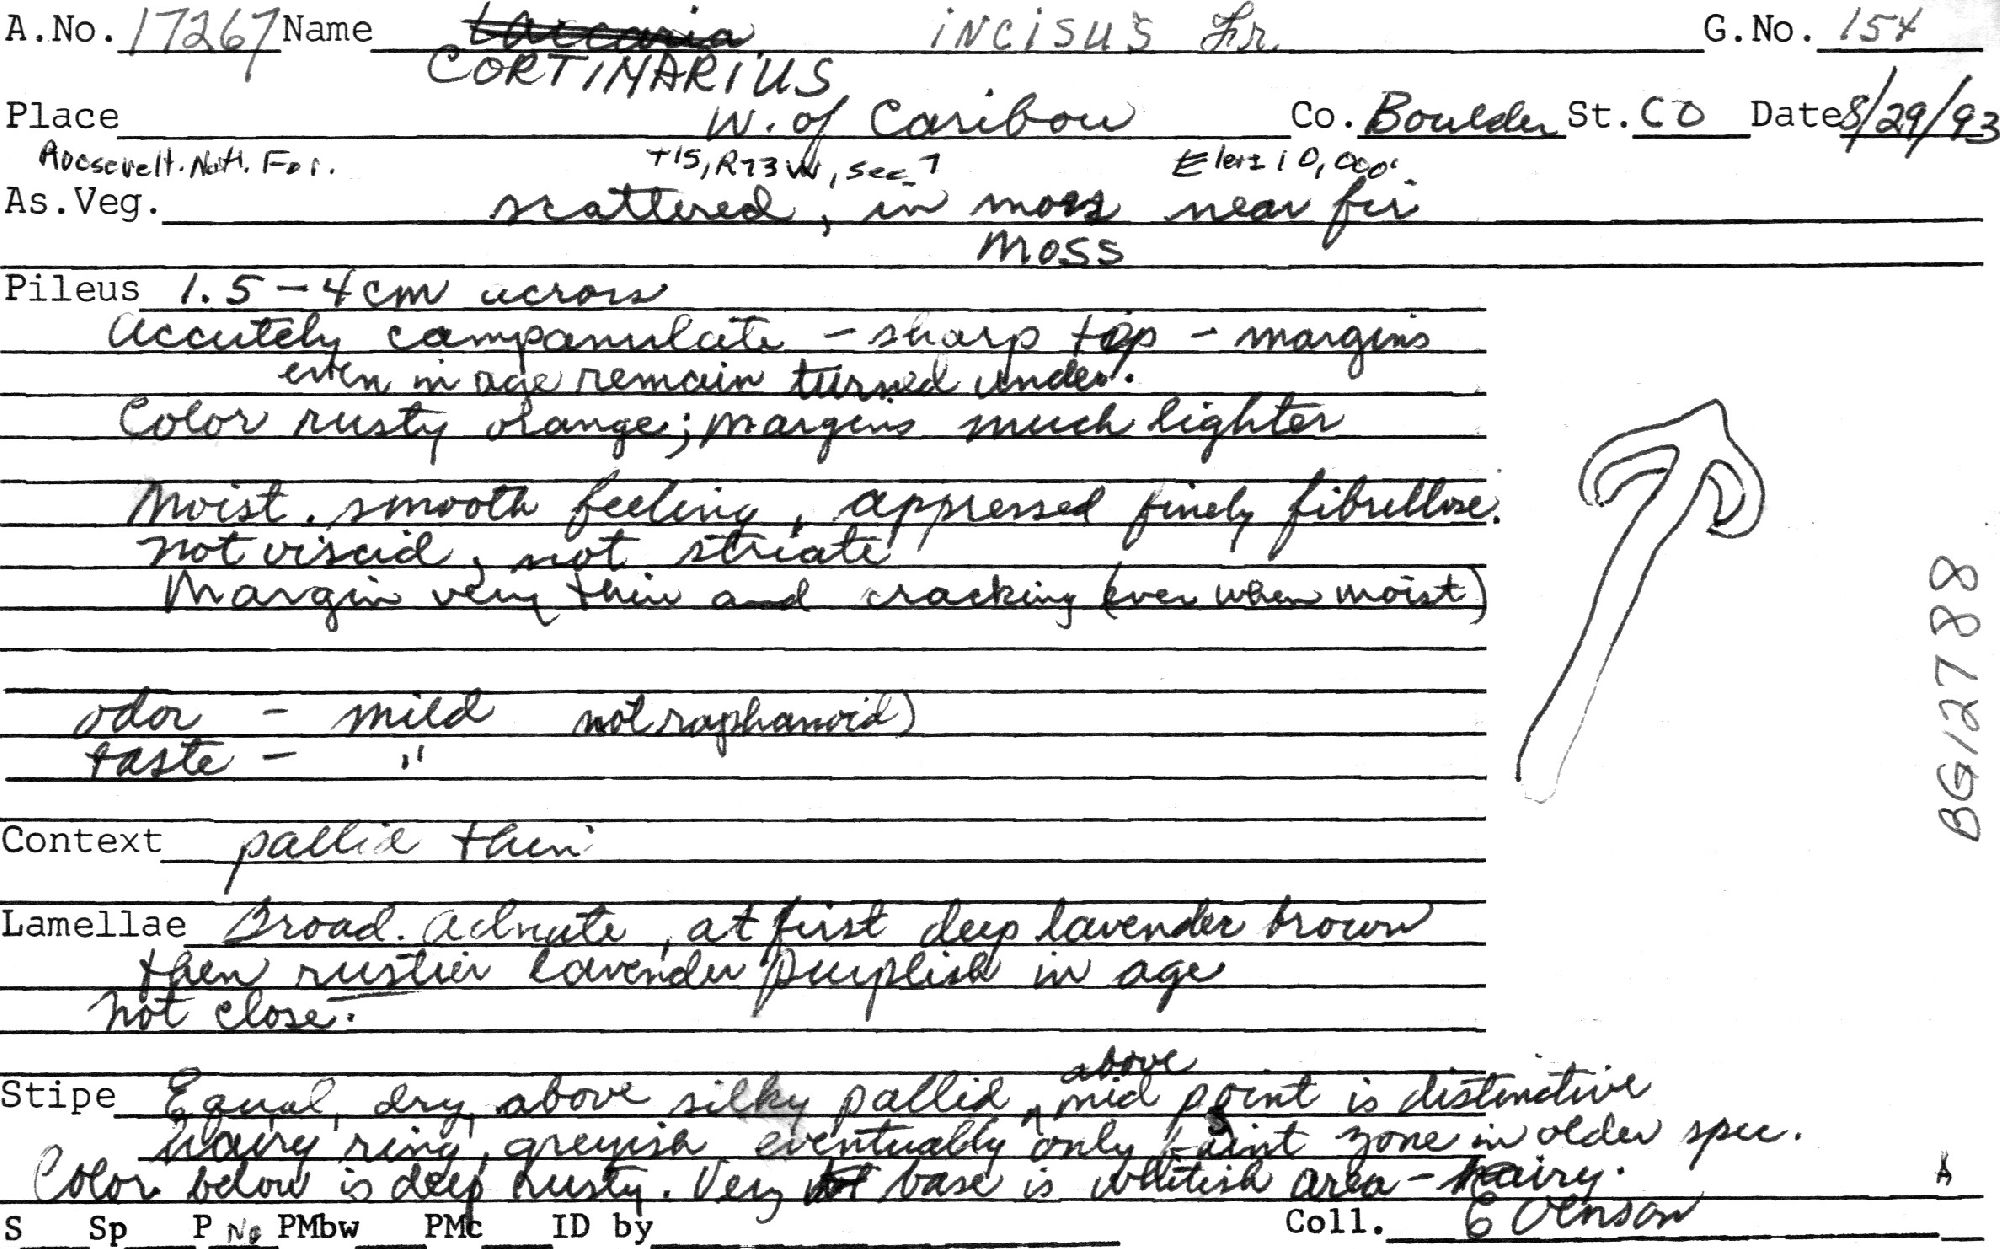 A.No. 17267 Name Laccaria incisus Fr. G.No. 154
CORTINARIUS
Place W. of Caribou Co. Boulder St. CO Date 8/29/93
Roosevelt. Natl. For. T1S, R73W, Sec. 7 Elev: 10,000'
As.Veg. scattered, in moss near fir
MOSS
Pileus 1.5 - 4 cm across
Accutely campanulate - sharp top - margins
even in age remain turned under.
Color rusty orange; margins much lighter
Moist. smooth feeling, appressed finely fibrillose.
not viscid, not striate
Margin very thin and cracking (even when moist)
odor - mild not raphanoid)
taste - "
Context pallid thin
Lamellae Broad. Adnate, at first deep lavender brown
then rustier lavender purplish in age
not close.
Stipe Equal, dry, above silky pallid, above mid point is distinctive
hairy ring, greyish eventually only faint zone in older spec.
Color below is deep rusty. Very base is whitish area - hairy.
S Sp P No PMbw PMc ID by Coll. E Evenson
BG12788
A